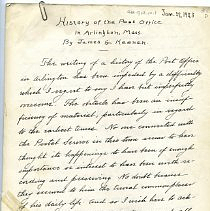 Jan. 19, 1923
History of the Post Office
in Arlington, Mass.
By James G. Keenan
The writing of a history of the Post Office
in Arlington has been impeded by a difficulty
which I regret to say I have but imperfectly
overcome. The obstacle has been an insuf-
ficiency of material, particularly in regard
to the earliest times. No one connected with
the Postal Service in this town seems to have
thought its happenings to have been of enough
importance or interest to have been worth re-
cording and preserving. No doubt because
they seemed to him the usual commonplaces
of his daily life. And so I wish to ack-